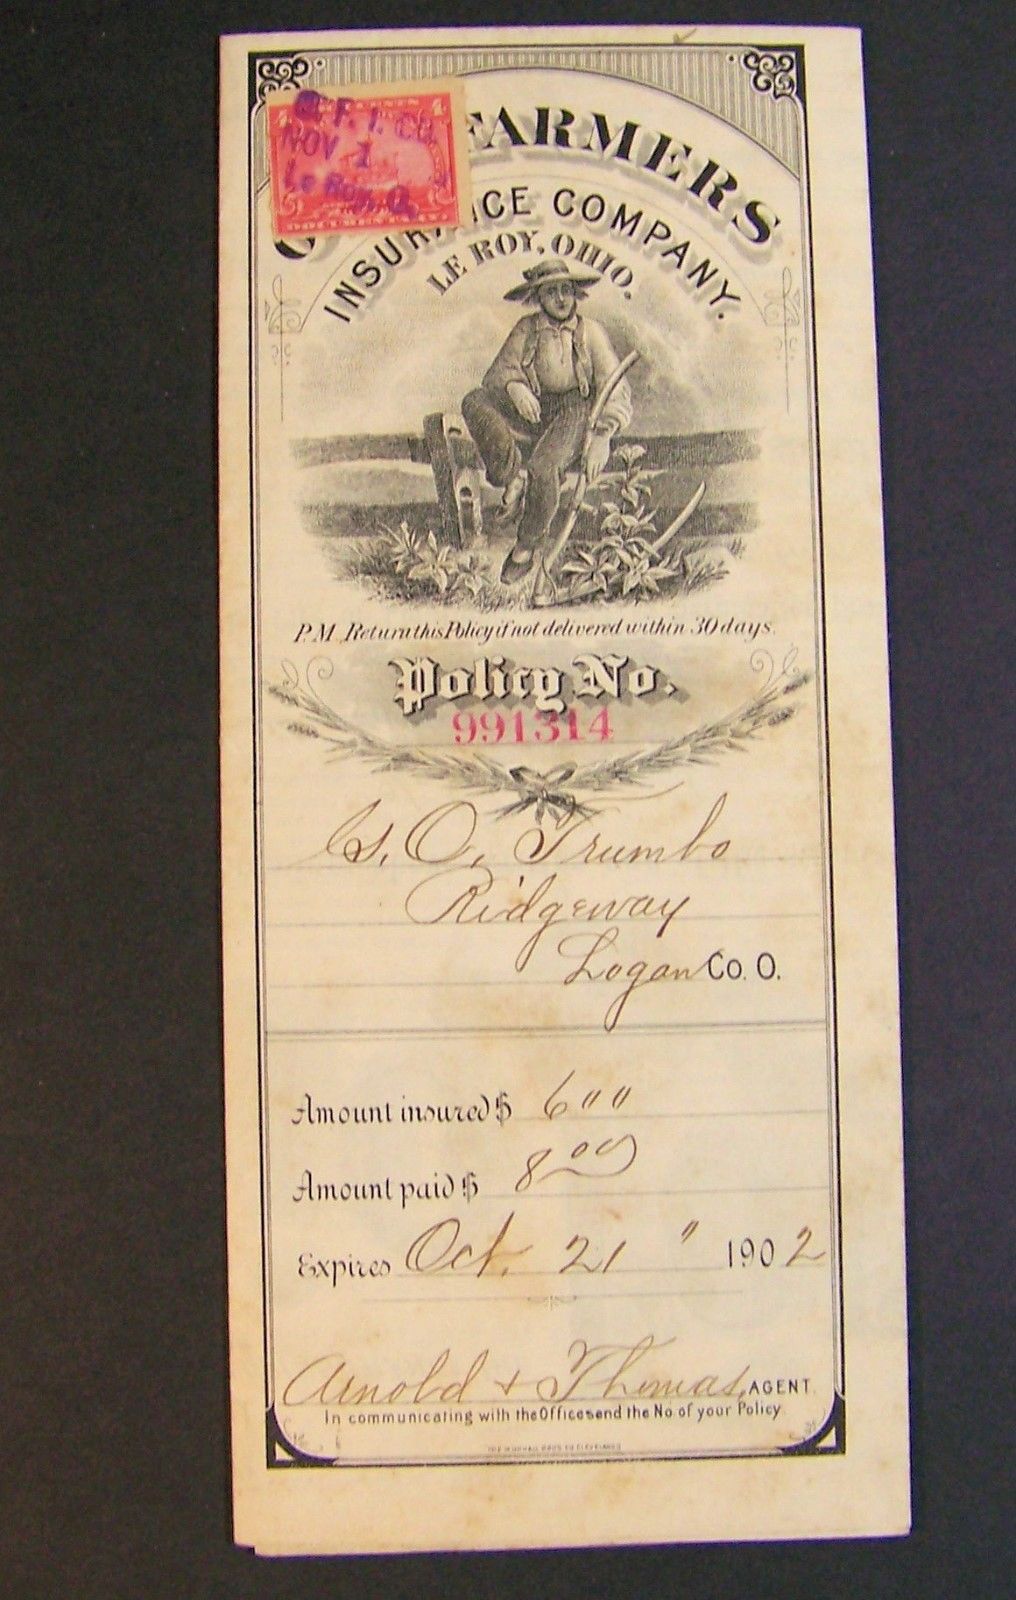 O. F. I. CO.
NOV 1
Le Roy, O.
4 CENTS 4
DOCUMENTARY
O FARMERS
INSURANCE COMPANY.
LE ROY, OHIO.
P.M. Return this Policy if not delivered within 30 days.
Policy No.
991314
O. Trumbo
Ridgeway
Logan Co. O.
Amount insured $ 6""
Amount paid $ 8.00
Expires Oct. 21 " 1902
Arnold + Thomas, AGENT.
In communicating with the Office send the No. of your Policy